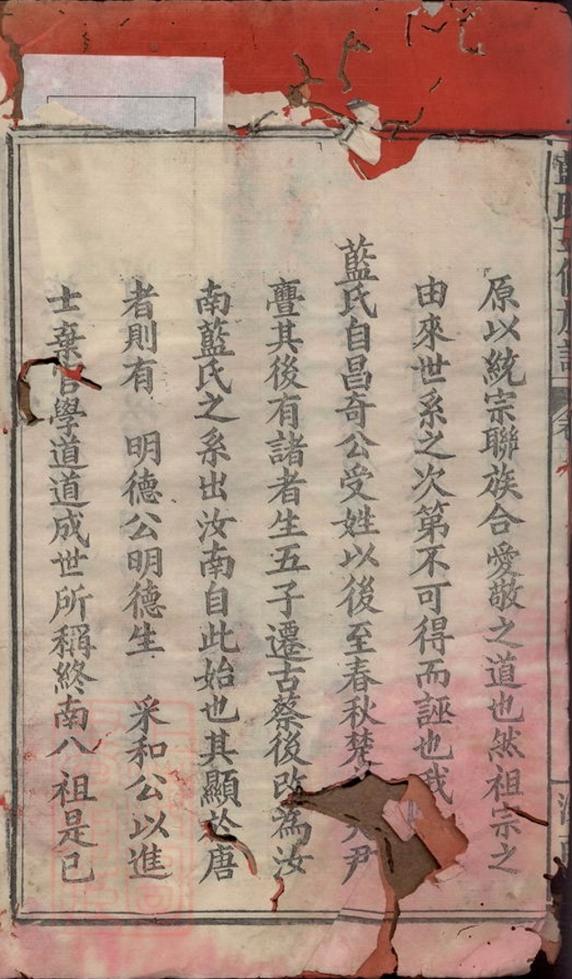 原以統宗聯族合愛敬之道也然祖宗之
由來世系之次第不可得而誣也我
藍氏自昌奇公受姓以後至春秋楚 尹
亹其後有諸者生五子遷古蔡後改為汝
南藍氏之系出汝南自此始也其顯於唐
者則有 明德公明德生 采和公以進
士棄官學道道成世所稱終南八祖是已